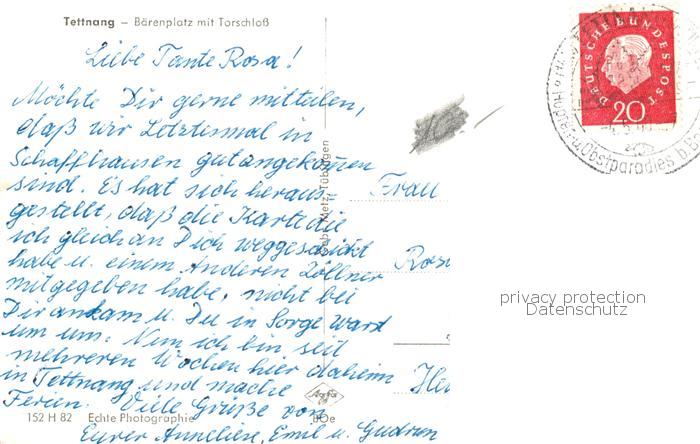 Tettnang – Bärenplatz mit Torschloß
Liebe Tante Rosa!
Möchte Dir gerne mitteilen,
daß wir Letztesmal in
Schaffhausen gutangekommen
sind. Es hat sich heraus-
gestellt, daß die Karte die
ich gleich an Dich weggeschickt
habe u. einem Anderen Zöllner
mitgegeben habe, nicht bei
Dir ankam u. Du in Sorge warst
um uns. Nun ich bin seit
mehreren Wochen hier daheim
in Tettnang und mache
Ferien. Viele Grüße von
Eurer Anneliese, Emil u. Gudrun
152 H 82 Echte Photographie
Gebr. Metz, Tübingen
Agfa
DEUTSCHE BUNDESPOST
20
Obstparadies
Frau
Rosa
privacy protection
Datenschutz